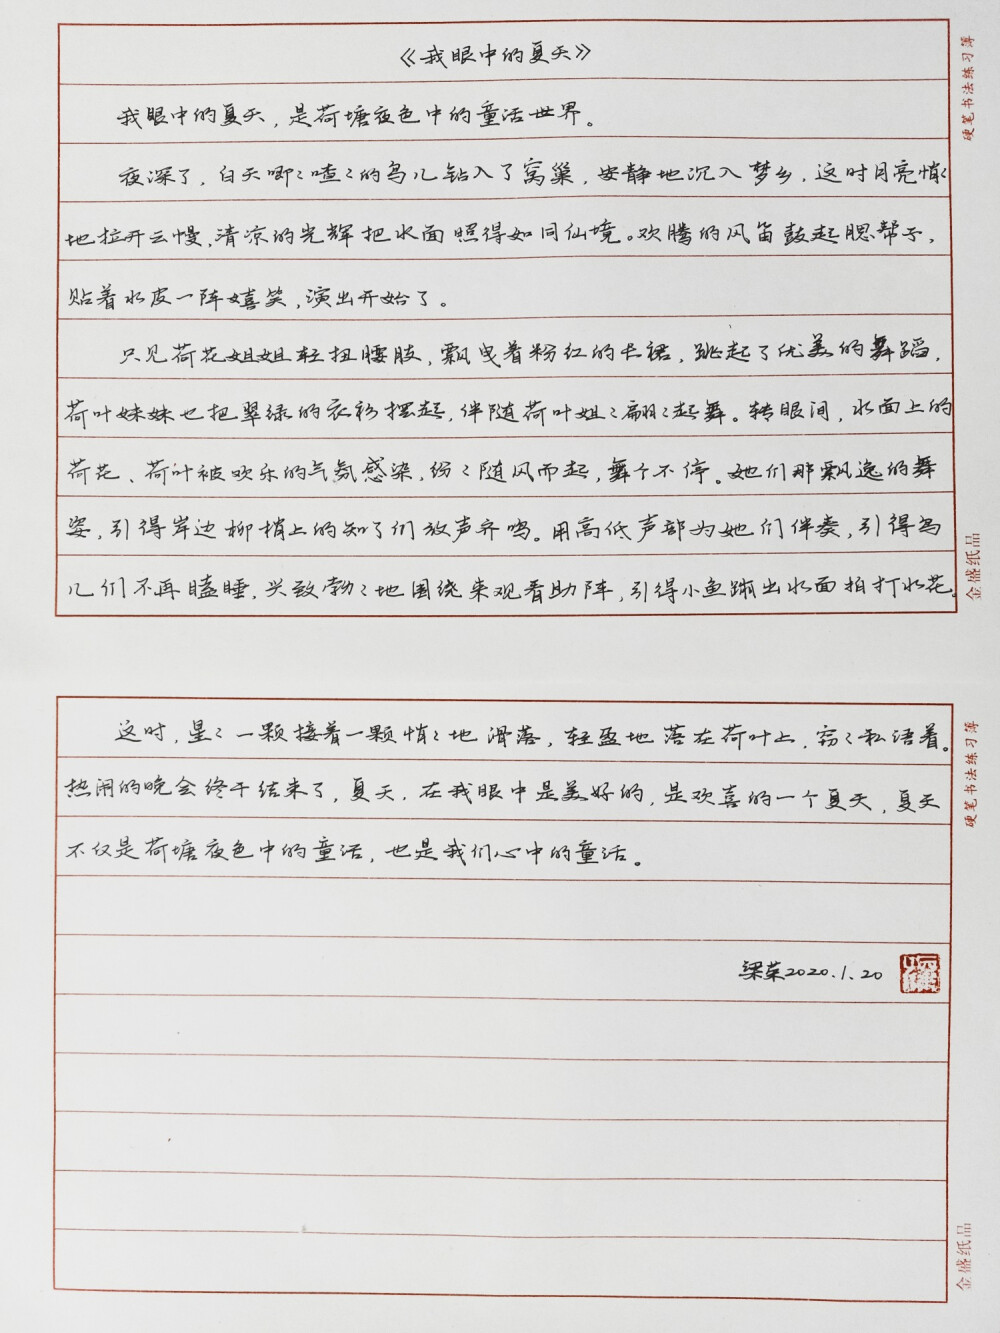 《我眼中的夏天》
我眼中的夏天，是荷塘夜色中的童话世界。
夜深了，白天唧〻喳〻的鸟儿钻入了窝巢，安静地沉入梦乡，这时月亮悄〻
地拉开云幔，清凉的光辉把水面照得如同仙境。欢腾的风笛鼓起腮帮子，
贴着水皮一阵嬉笑，演出开始了。
只见荷花姐姐轻扭腰肢，飘曳着粉红的长裙，跳起了优美的舞蹈，
荷叶妹妹也把翠绿的衣衫摆起，伴随荷叶姐〻翩〻起舞。转眼间，水面上的
荷花、荷叶被欢乐的气氛感染，纷〻随风而起，舞个不停。她们那飘逸的舞
姿，引得岸边柳梢上的知了们放声齐鸣。用高低声部为她们伴奏，引得鸟
儿们不再瞌睡，兴致勃〻地围绕来观看助阵，引得小鱼蹦出水面拍打水花。
这时，星〻一颗接着一颗悄〻地滑落，轻盈地落在荷叶上，窃〻私语着。
热闹的晚会终于结束了，夏天．在我眼中是美好的，是欢喜的一个夏天，夏天
不仅是荷塘夜色中的童话，也是我们心中的童话。
梁荣2020.1.20
硬笔书法练习薄
金盛纸品
硬笔书法练习薄
金盛纸品